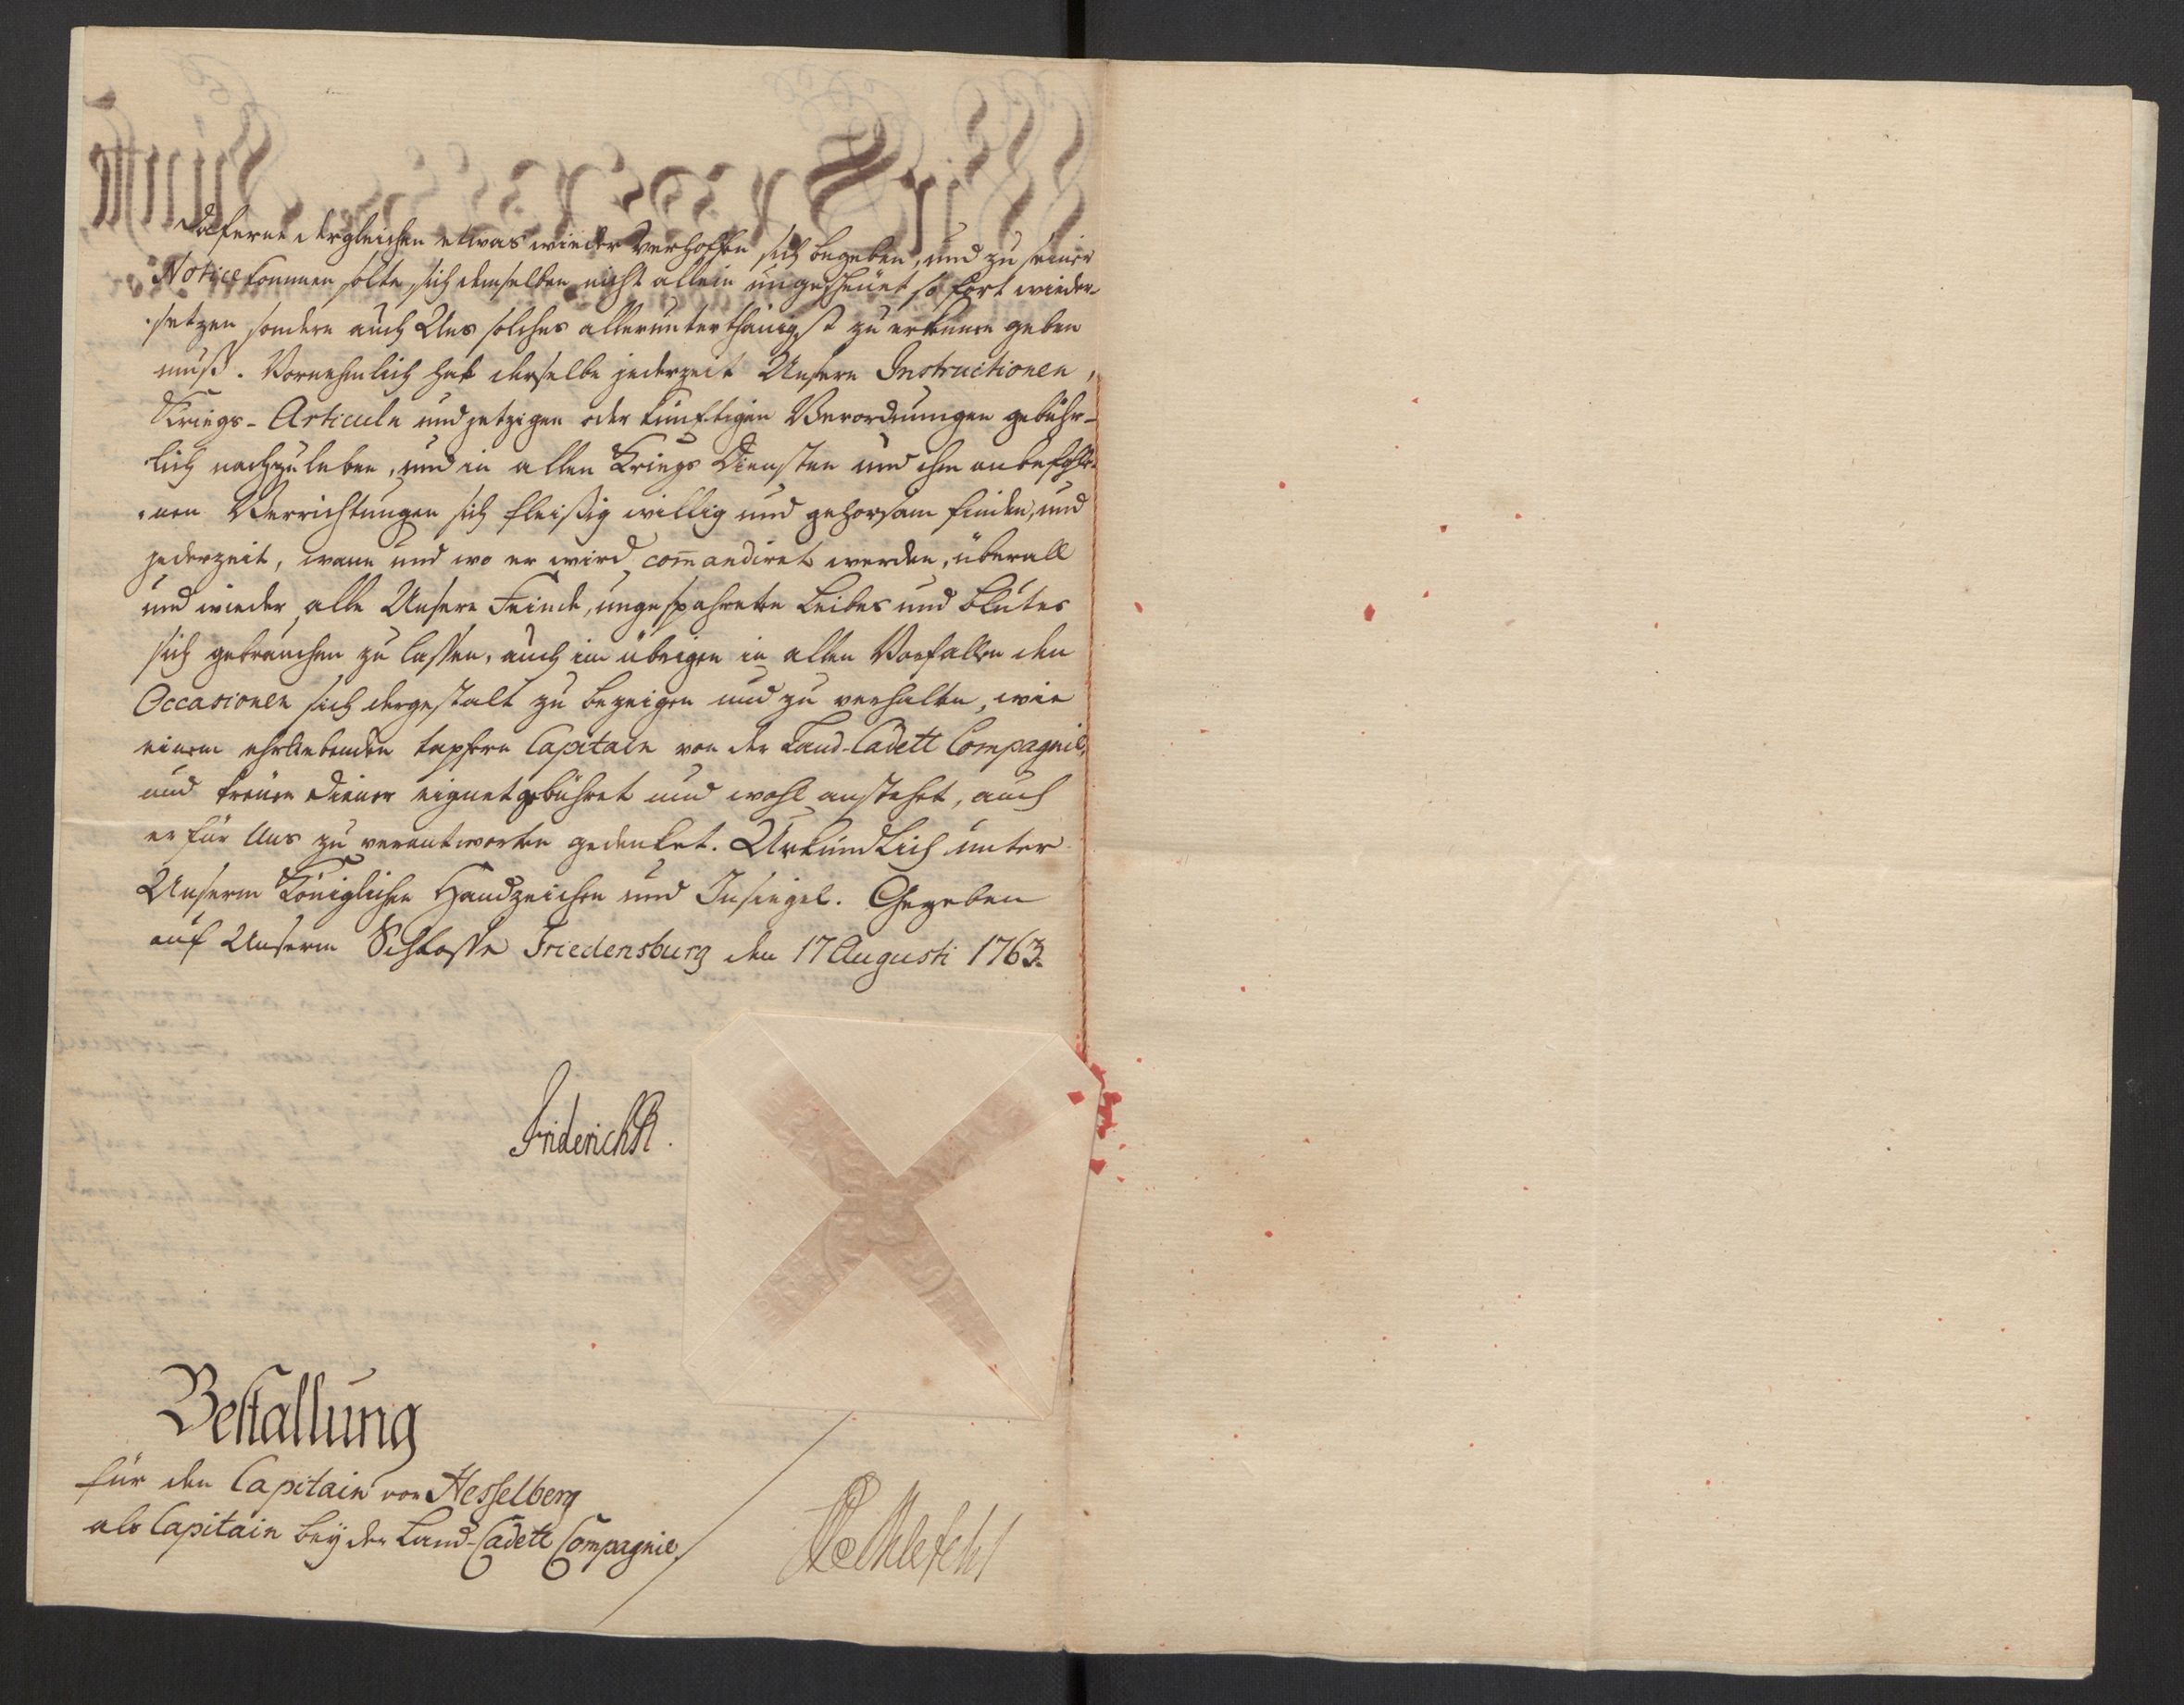 daferne dergleichen etwas wieder Verhoffen sich begeben, und zu seiner
Notice kommen solte, sich demselben nicht allein ungescheüet so fort wieder-
setzen sondern auch Uns solches allerunterthänigst zu erkennen geben
muß. Vornehmlich hat derselbe jederzeit Unsern Instructionen,
Kriegs-Articuln und jetzigen oder künftigen Verordnungen gebühr-
lich nachzuleben, und in allen Kriegs Diensten und ihm anbefohle-
nen Verrichtungen sich fleißig willig und gehorsam finden, und
jederzeit, wann und wo er wird com̄andiret werden, überall
und wieder alle Unsere Feinde, ungesparhten Leibes und Blutes
sich gebrauchen zu lassen, auch im übrigen in allen Vorfallenden
Occasionen sich dergestalt zu bezeigen und zu verhalten, wie
einem ehrliebenden tapfern Capitain von der Land-Cadett Compagnie,
und treüen Diener eignet gebühret und wohl anstehet, auch
er für Uns zu verantworten gedenket. Urkundlich unter
Unserm Königlichen Handzeichen und Insiegel. Gegeben
auf Unserm Schlosse Friedensburg den 17 Augusti 1763.
Friderich R.
Bestallung
für den Capitain von Hesselberg
als Capitain bey der Land-Cadett Compagnie.